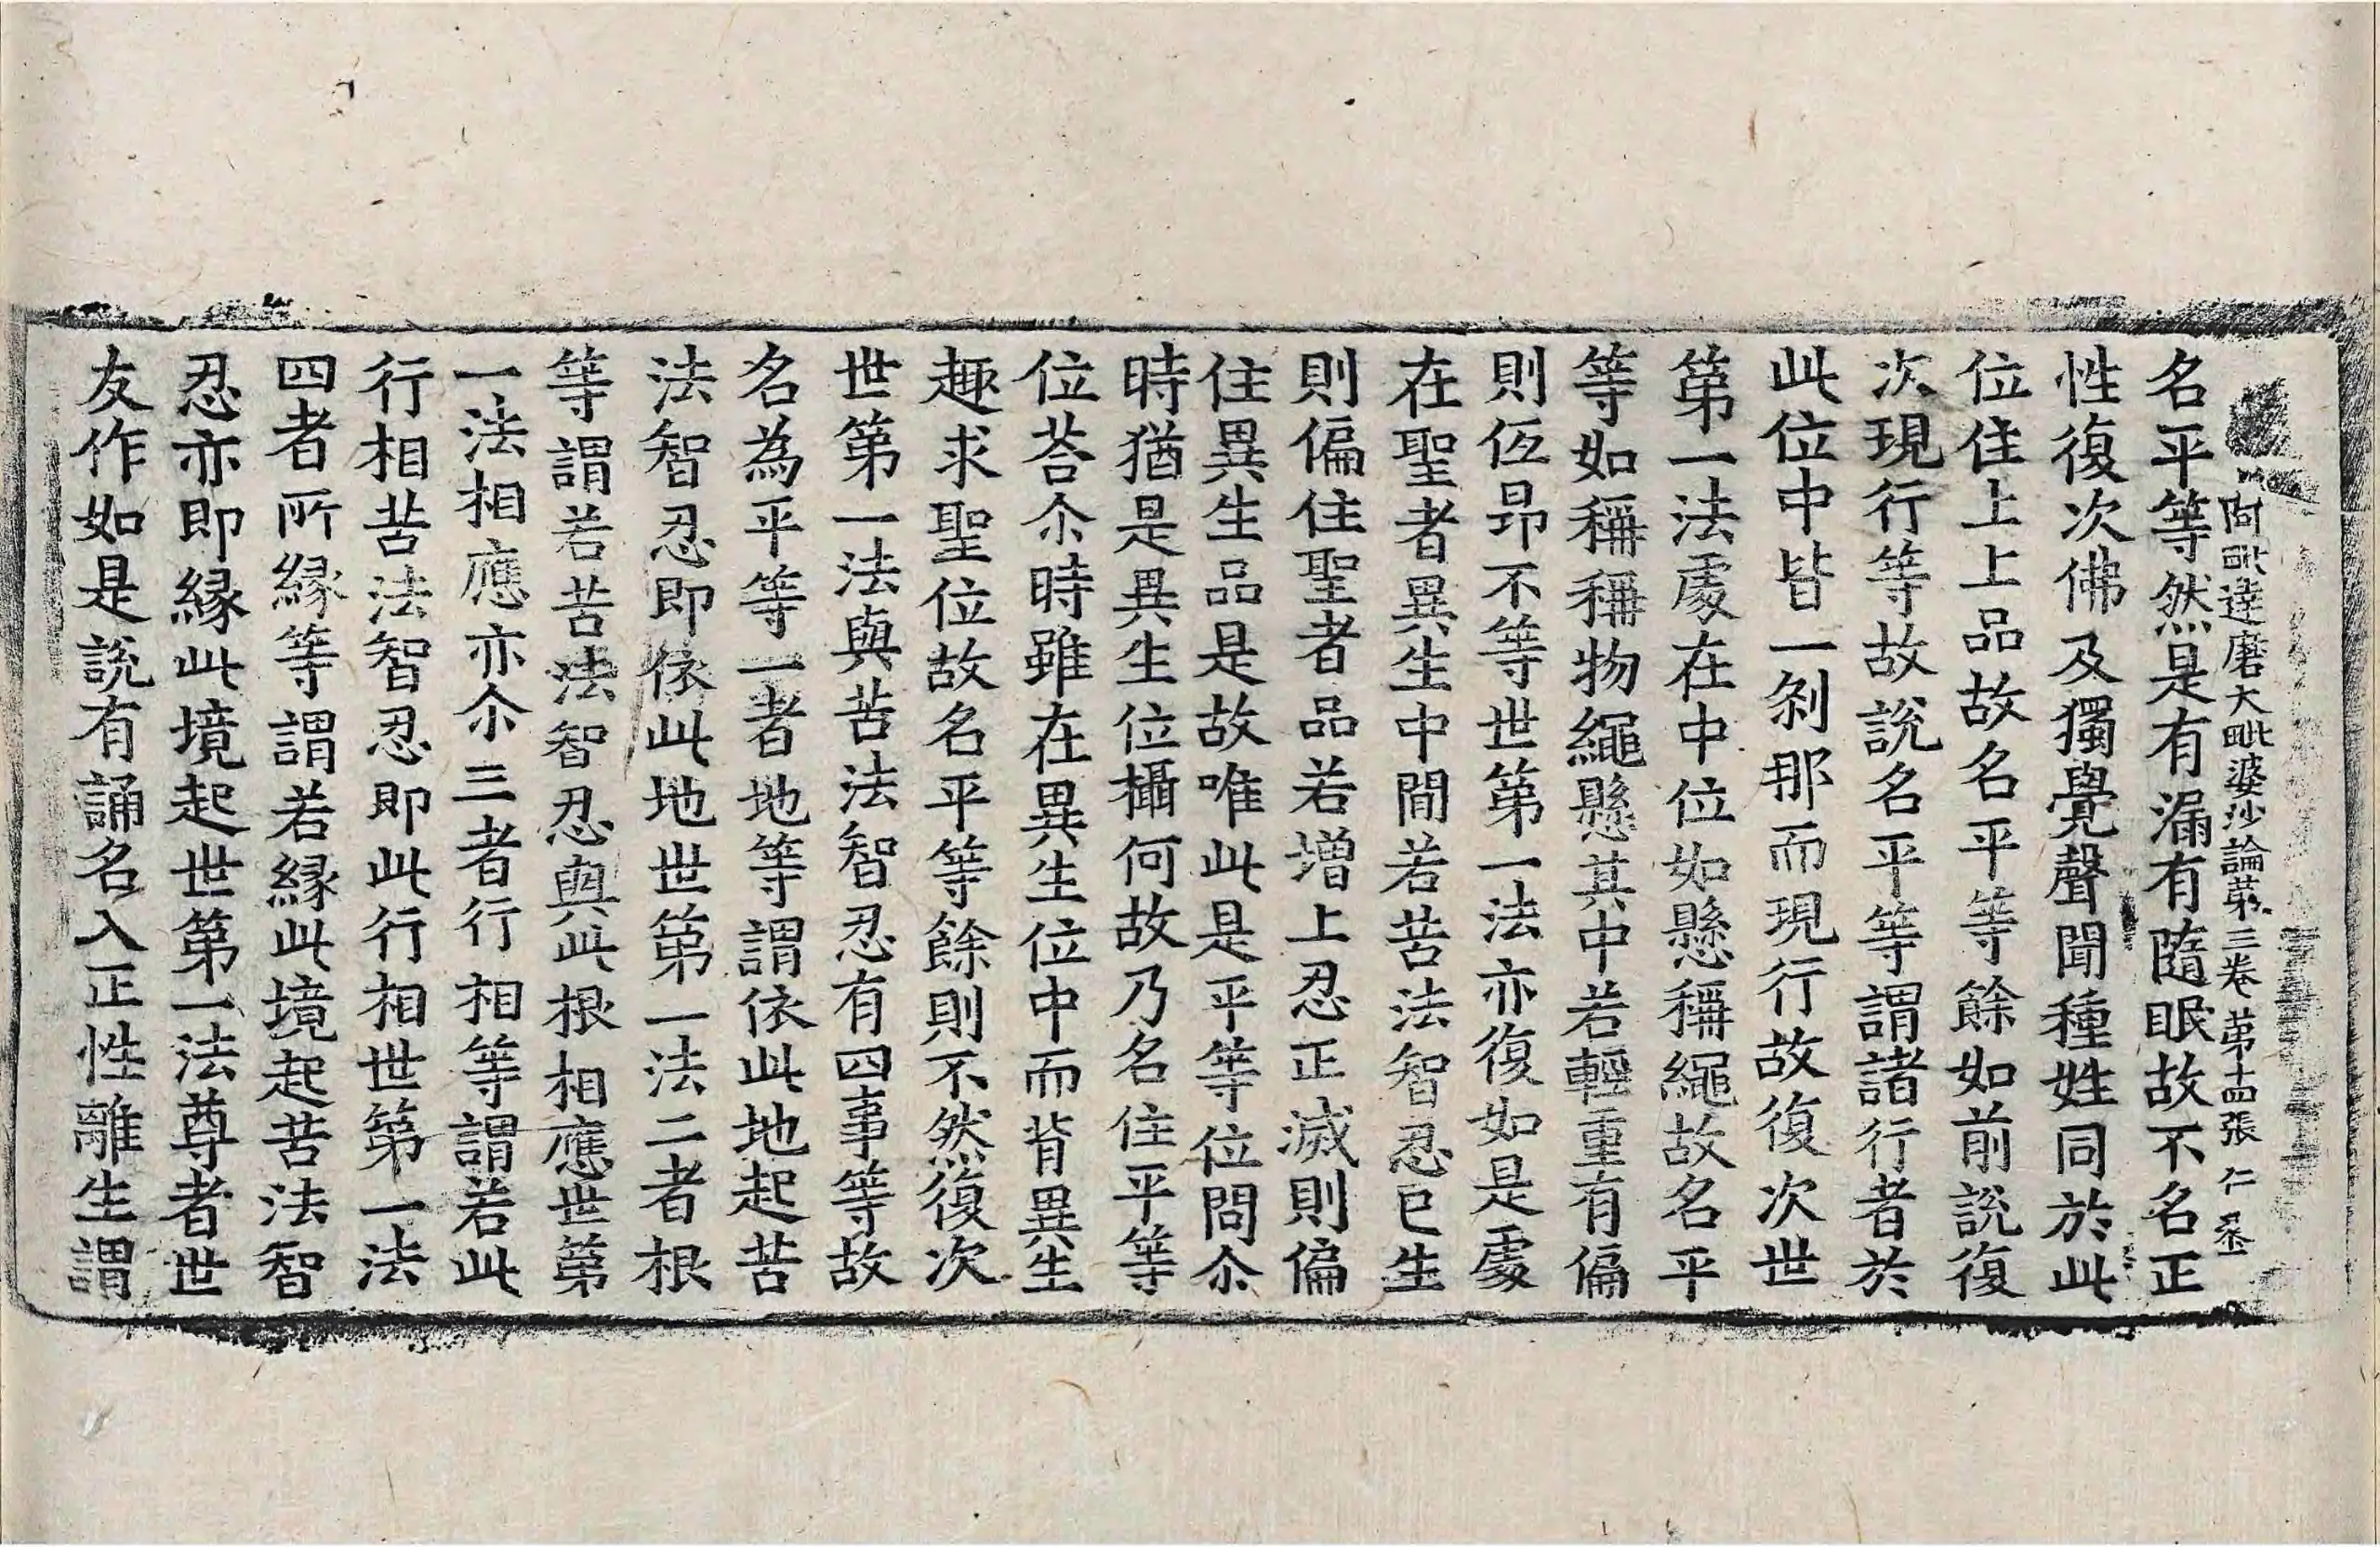 阿毗達磨大毗婆沙論第三卷　第十四張　仁
名平等然是有漏有隨眠故不名正
性復次佛及獨覺聲聞種姓同於此
位住上上品故名平等餘如前說復
次現行等故說名平等謂諸行者於
此位中皆一剎那而現行故復次世
第一法處在中位如懸稱繩故名平
等如稱稱物繩懸其中若輕重有偏
則伍昂不等世第一法亦復如是處
在聖者異生中間若苦法智忍已生
則偏住聖者品若增上忍正滅則偏
住異生品是故唯此是平等位問尒
時猶是異生位攝何故乃名住平等
位荅尒時雖在異生位中而背異生
趣求聖位故名平等餘則不然復次
世第一法與苦法智忍有四事等故
名為平等一者地等謂依此地起苦
法智忍即依此地世第一法二者根
等謂若苦法智忍與此根相應世第
一法相應亦尒三者行相等謂若此
行相苦法智忍即此行相世第一法
四者所縁等謂若縁此境起苦法智
忍亦即縁此境起世第一法尊者世
友作如是說有誦名入正性離生謂